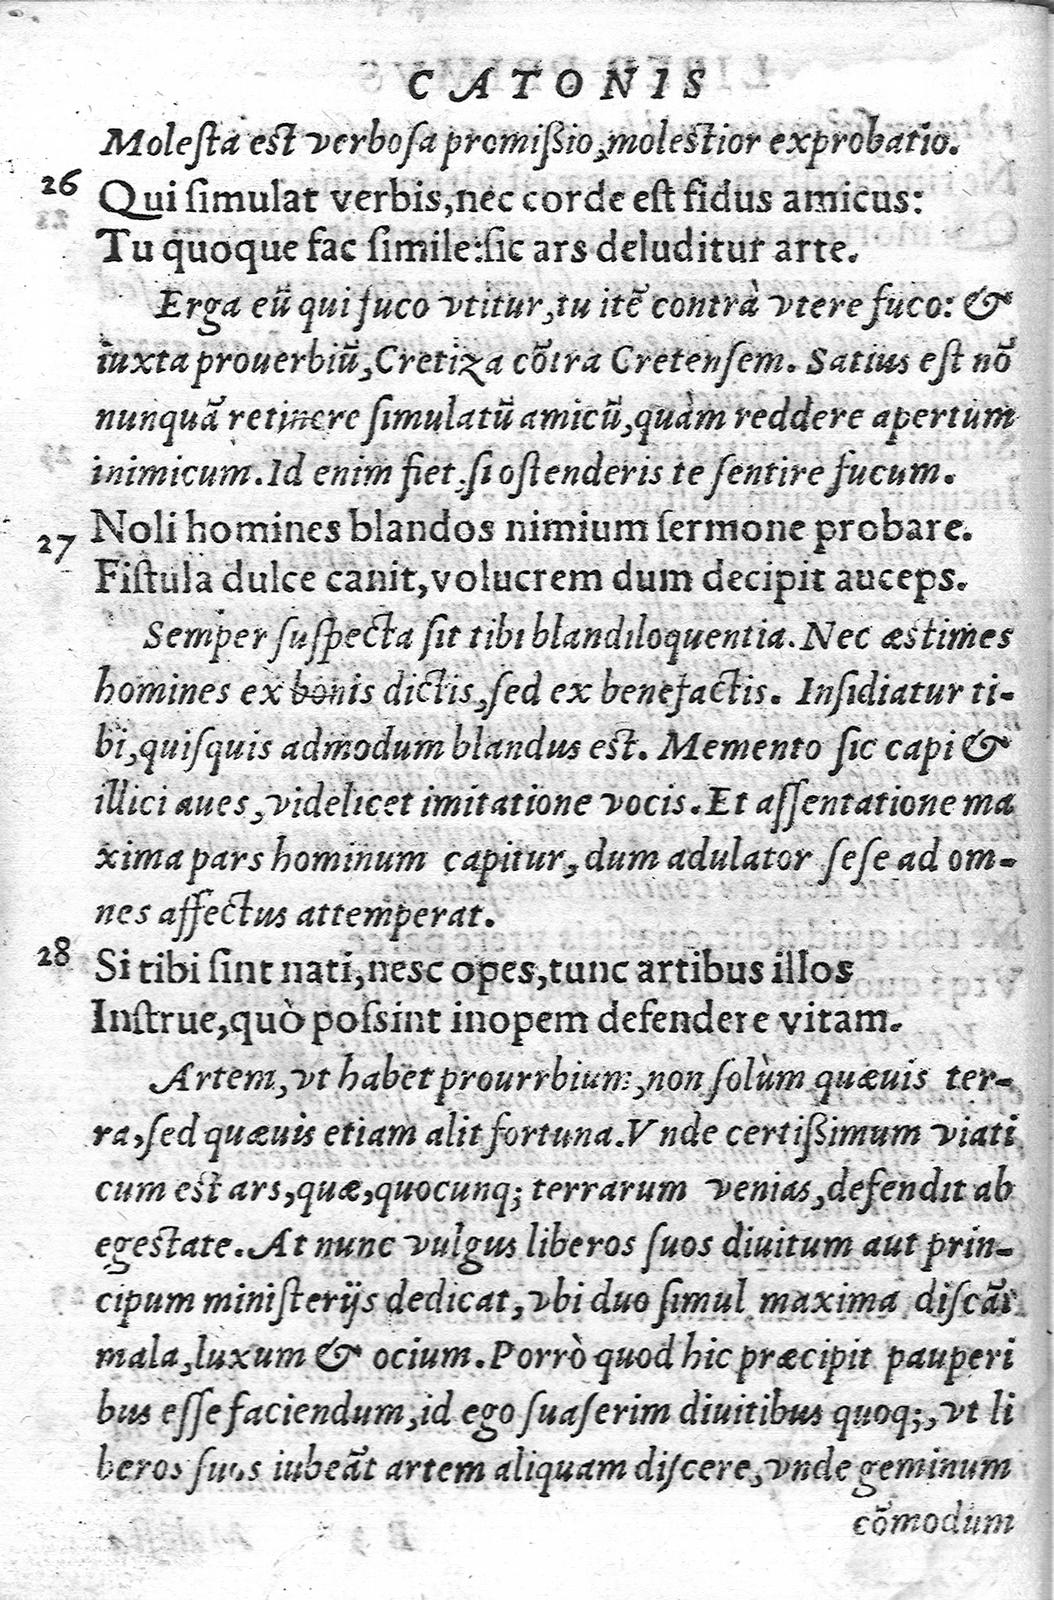 CATONIS
Molesta est verbosa promißio, molestior exprobatio.
26 Qui simulat verbis, nec corde est fidus amicus:
Tu quoque fac simile: sic ars deluditur arte.
Erga eũ qui fuco vtitur, tu itẽ contrà vtere fuco: &
iuxta prouerbiũ, Cretiza cõtra Cretensem. Satius est nõ
nunquã retinere simulatũ amicũ, quàm reddere apertum
inimicum. Id enim fiet, si ostenderis te sentire fucum.
27 Noli homines blandos nimium sermone probare.
Fistula dulce canit, volucrem dum decipit auceps.
Semper suspecta sit tibi blandiloquentia. Nec æstimes
homines ex bonis dictis, sed ex benefactis. Insidiatur ti-
bi, quisquis admodum blandus est. Memento sic capi &
illici aues, videlicet imitatione vocis. Et assentatione ma
xima pars hominum capitur, dum adulator sese ad om-
nes affectus attemperat.
28 Si tibi sint nati, nesc opes, tunc artibus illos
Instrue, quò possint inopem defendere vitam.
Artem, vt habet prourrbium, non solùm quæuis ter-
ra, sed quæuis etiam alit fortuna. Vnde certißimum viati
cum est ars, quæ, quocunq; terrarum venias, defendit ab
egestate. At nunc vulgus liberos suos diuitum aut prin-
cipum ministerijs dedicat, vbi duo simul maxima discãt
mala, luxum & ocium. Porrò quod hic præcipit pauperi
bus esse faciendum, id ego suaserim diuitibus quoq;, vt li
beros suos iubeãt artem aliquam discere, vnde geminum
cõmodum